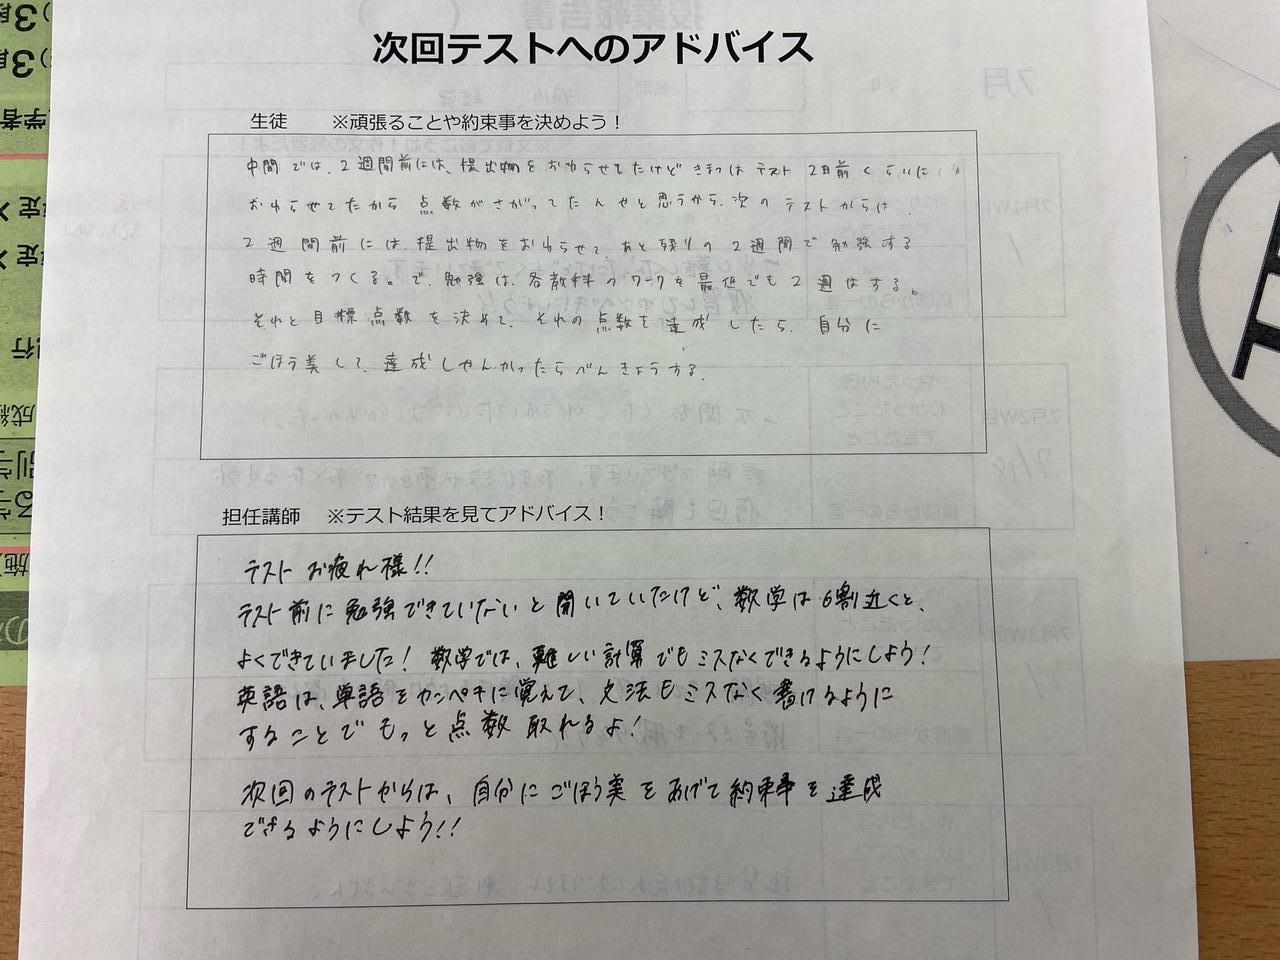 次回テストへのアドバイス
生徒 ※頑張ることや約束事を決めよう！
中間では、2週間前には、提出物をおわらせてたけどきまつはテスト2日前くらいに
おわらせてたから点数がさがってたんやと思うから、次のテストからは、
2週間前には提出物をおわらせて、あと残りの2週間で勉強する
時間をつくる。で、勉強は、各教科のワークを最低でも2週はする。
それと目標点数を決めて、それの点数を達成したら、自分に
ごほう美して、達成しやんかったらべんきょうする。
担任講師 ※テスト結果を見てアドバイス！
テストお疲れ様!!
テスト前に勉強できていないと聞いていたけど、数学は6割近くと、
よくできていました！数学では、難しい計算でもミスなくできるようにしよう！
英語は、単語をカンペキに覚えて、文法もミスなく書けるように
することでもっと点数取れるよ！
次回のテストからは、自分にごほう美をあげて約束事を達成
できるようにしよう!!